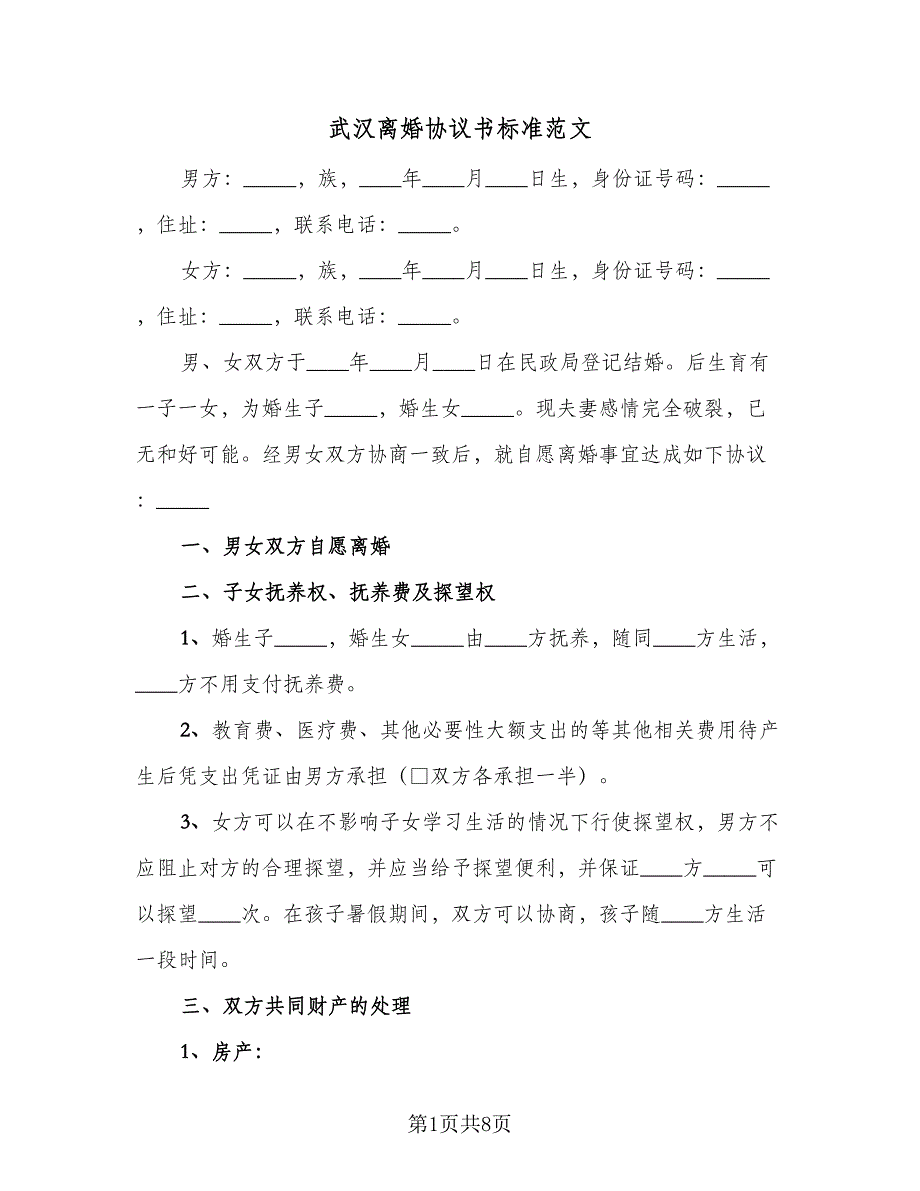 武汉离婚协议书标准范文
男方：_____，族，____年____月____日生，身份证号码：_____
，住址：_____，联系电话：_____。
女方：_____，族，____年____月____日生，身份证号码：_____
，住址：_____，联系电话：_____。
男、女双方于____年____月____日在民政局登记结婚。后生育有
一子一女，为婚生子_____，婚生女_____。现夫妻感情完全破裂，已
无和好可能。经男女双方协商一致后，就自愿离婚事宜达成如下协议
：_____
一、男女双方自愿离婚
二、子女抚养权、抚养费及探望权
1、婚生子_____，婚生女_____由____方抚养，随同____方生活，
____方不用支付抚养费。
2、教育费、医疗费、其他必要性大额支出的等其他相关费用待产
生后凭支出凭证由男方承担（□双方各承担一半）。
3、女方可以在不影响子女学习生活的情况下行使探望权，男方不
应阻止对方的合理探望，并应当给予探望便利，并保证____方_____可
以探望____次。在孩子暑假期间，双方可以协商，孩子随____方生活
一段时间。
三、双方共同财产的处理
1、房产：
第1页共8页